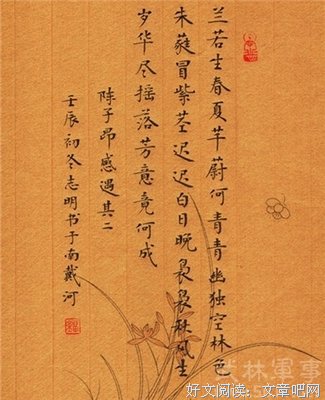 兰若生春夏芊蔚何青青幽独空林色
朱蕤冒紫茎迟迟白日晚袅袅秋风生
岁华尽摇落芳意竟何成
陈子昂感遇其二
壬辰初冬志明书于南戴河
林軍事
好文阅读：文章吧网